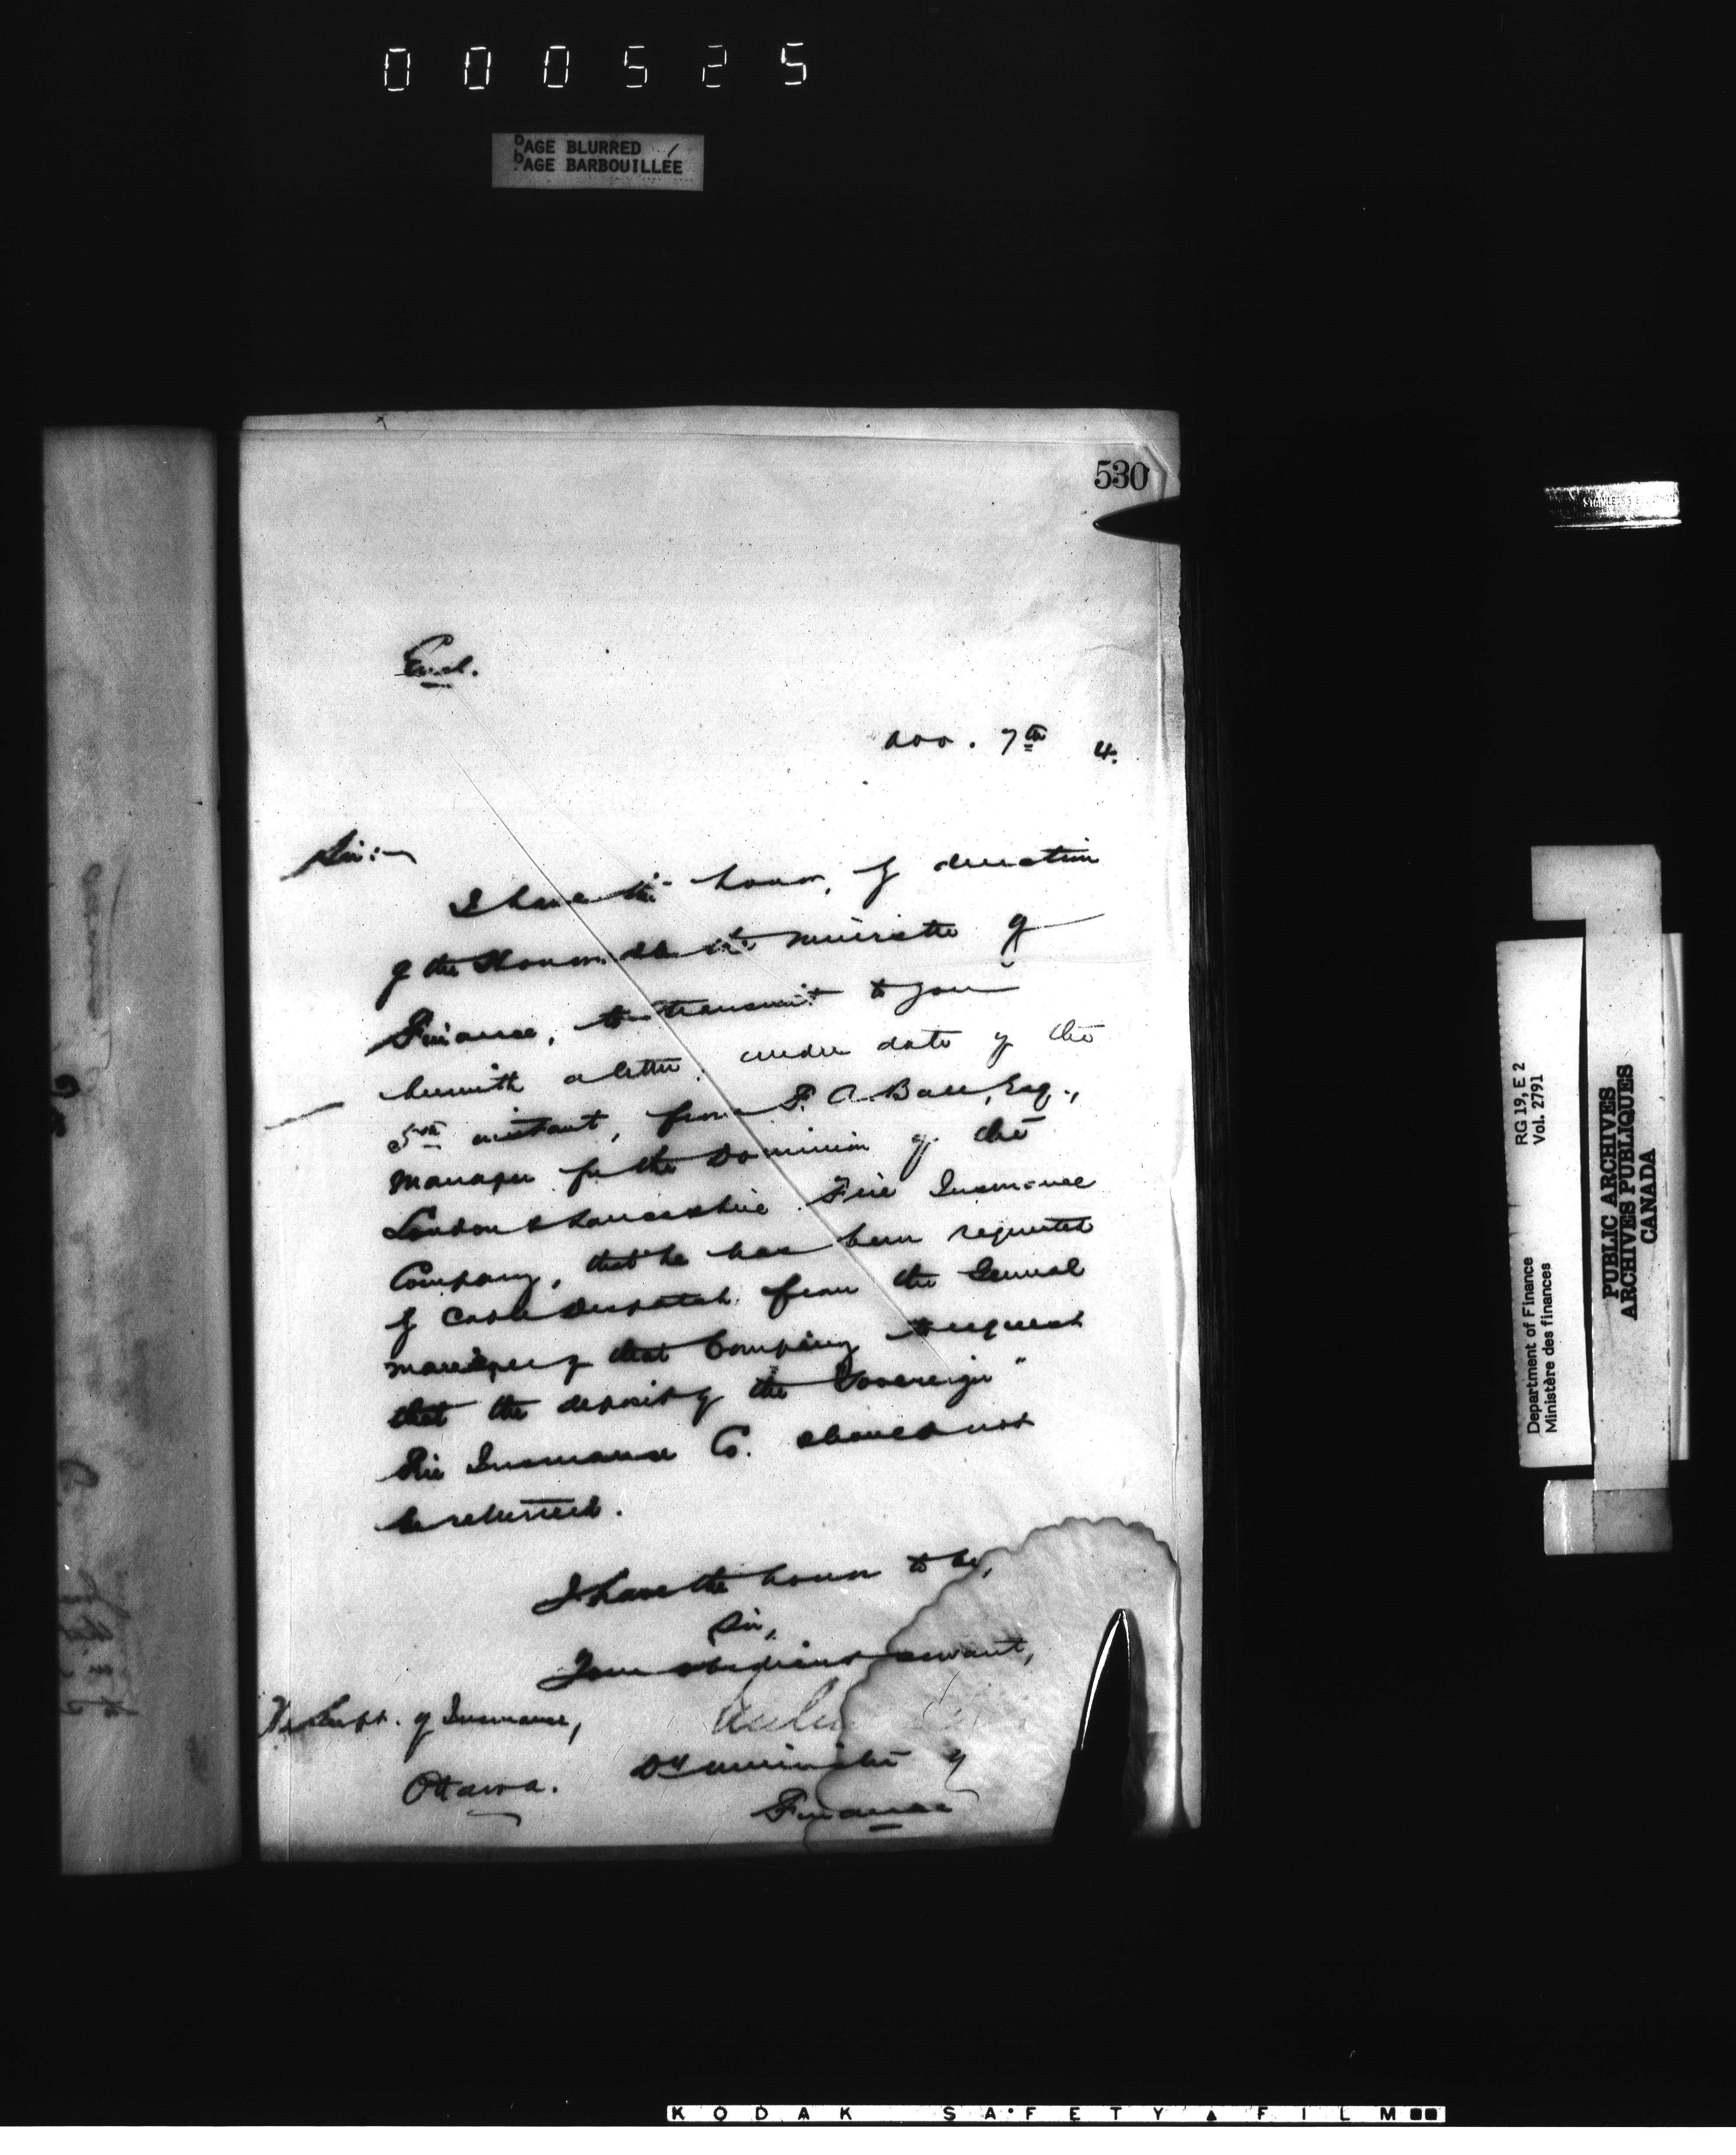 000525
PAGE BLURRED
PAGE BARBOUILLÉE
530
Encl.
Nov. 7th 4.
Sir:—
I have the honor, by direction
of the Honorable the Minister of
Finance, to transmit to you
herewith a letter, under date of the
5th instant, from F. A. Ball, Esq.,
Manager for the Dominion of the
London & Lancashire Fire Insurance
Company, that he has been requested
by cable despatch from the General
Manager of that Company to request
that the deposit of the "Sovereign"
Fire Insurance Co. should not
be returned.
I have the honor to be,
Sir,
Your obedient servant,
The Supt. of Insurance,
Ottawa.
Dy Minister of
Finance
RG 19, E 2
Vol. 2791
Department of Finance
Ministère des finances
PUBLIC ARCHIVES
ARCHIVES PUBLIQUES
CANADA
KODAK SAFETY FILM